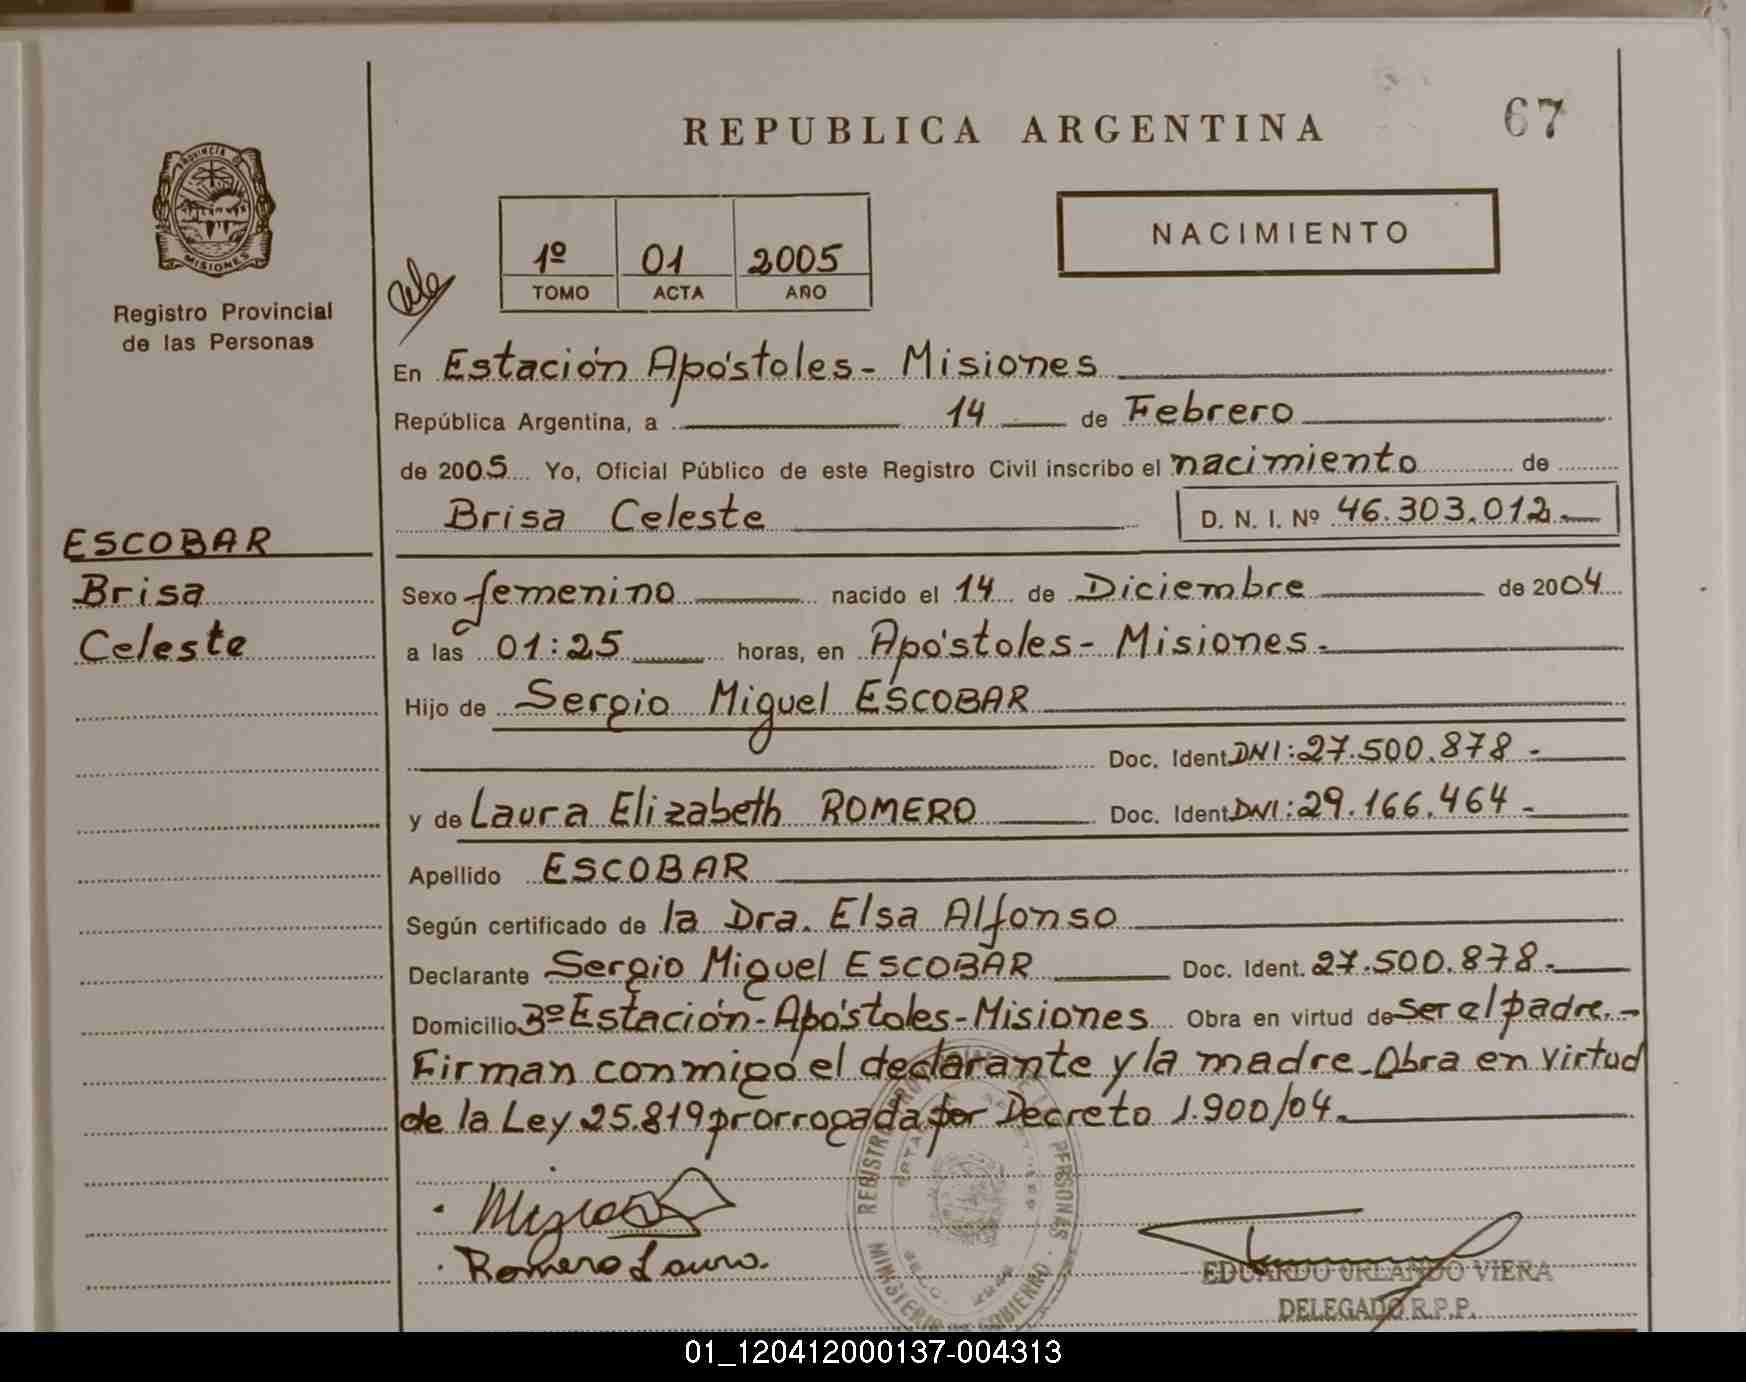 REPUBLICA ARGENTINA
67
PROVINCIA DE
MISIONES
Registro Provincial
de las Personas
1º 01 2005
TOMO ACTA AÑO
NACIMIENTO
En Estación Apóstoles - Misiones
República Argentina, a 14 de Febrero
de 2005 Yo, Oficial Público de este Registro Civil inscribo el nacimiento de
Brisa Celeste D. N. I. Nº 46.303.012.-
ESCOBAR
Brisa
Celeste
Sexo femenino nacido el 14 de Diciembre de 2004
a las 01:25 horas, en Apóstoles - Misiones.-
Hijo de Sergio Miguel ESCOBAR
Doc. Ident. DNI: 27.500.878.-
y de Laura Elizabeth ROMERO Doc. Ident. DNI: 29.166.464.-
Apellido ESCOBAR
Según certificado de la Dra. Elsa Alfonso
Declarante Sergio Miguel ESCOBAR Doc. Ident. 27.500.878.-
Domicilio Bº Estación - Apóstoles - Misiones Obra en virtud de ser el padre.-
Firman conmigo el declarante y la madre. Obra en virtud
de la Ley 25.819 prorrogada por Decreto 1.900/04.-
Romero Laura.
EDUARDO ORLANDO VIERA
DELEGADO R.P.P.
01_120412000137-004313